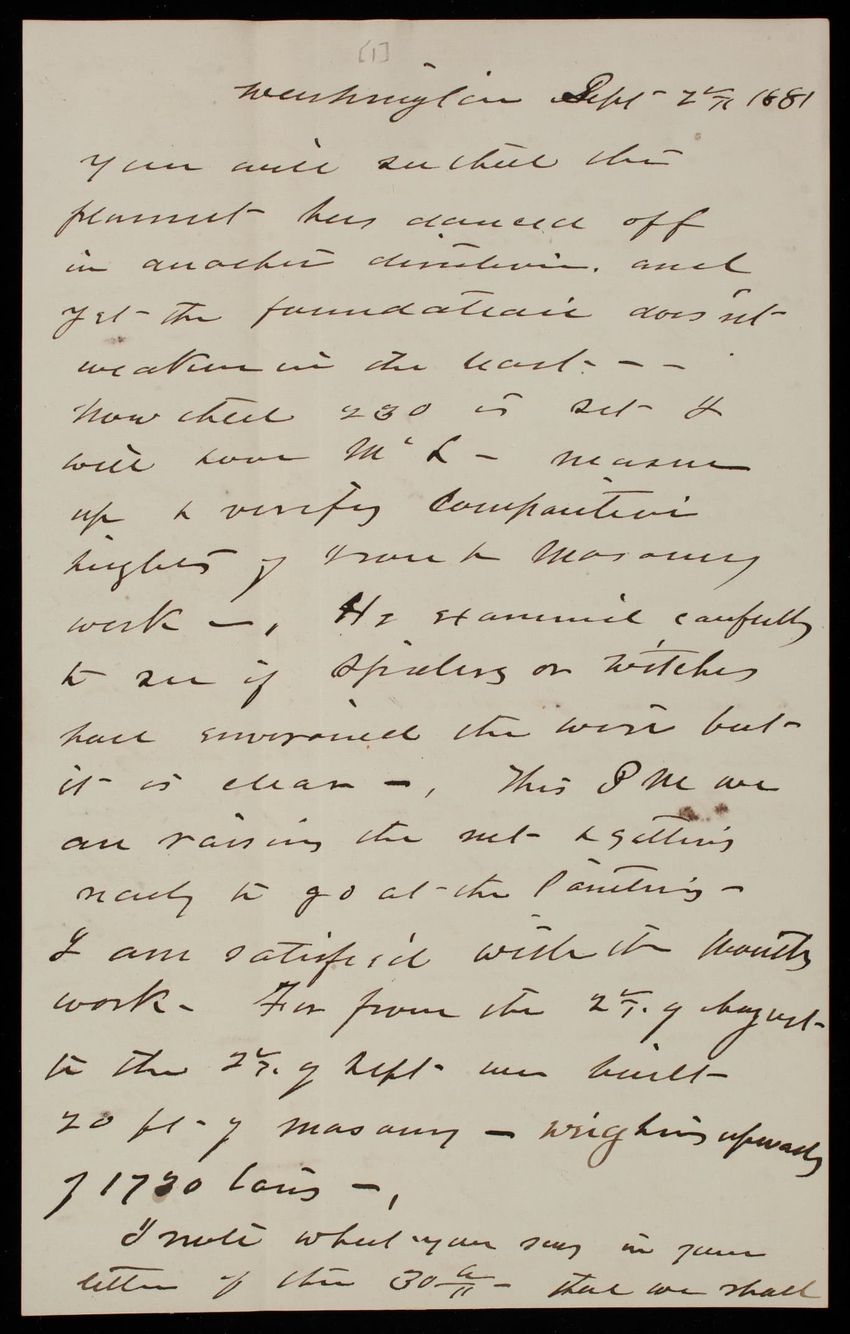 [1]
Washington Sept 2d 1881
You will see that the
plummet has danced off
in another direction. and
yet the foundation does'nt
weaken in the least - -
Now that 230 is set I
will have Mc L - measure
up & verify comparative
heights of Iron & Masonry
work -, He examined carefully
to see if spiders or witches
had environed the wire but
it is clear -, This P M we
are raising the net & getting
ready to go at the
I am satisfied with the months
work - For from the 2d. of August
to the 2d. of Sept we built
20 ft of masonry - weighing upwards
of 1720 tons -,
I note what you say in your
letter of the 30th - that we shall